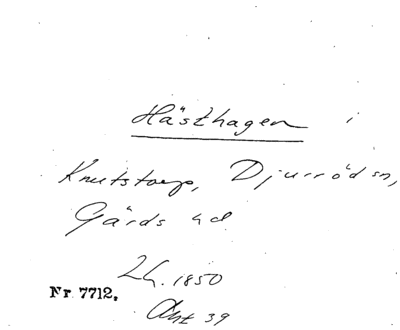 Hästhagen i
Knutstorp, Djurröd sn,
Gärds hd
Lh. 1850
Nr 7712.
Akt 39